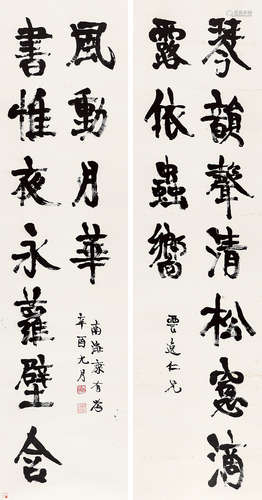 琴韻聲清松窻滴
露依蟲嚮
仁兄
書帷夜永蘿壁含
風動月華
辛酉九月
南海康有為